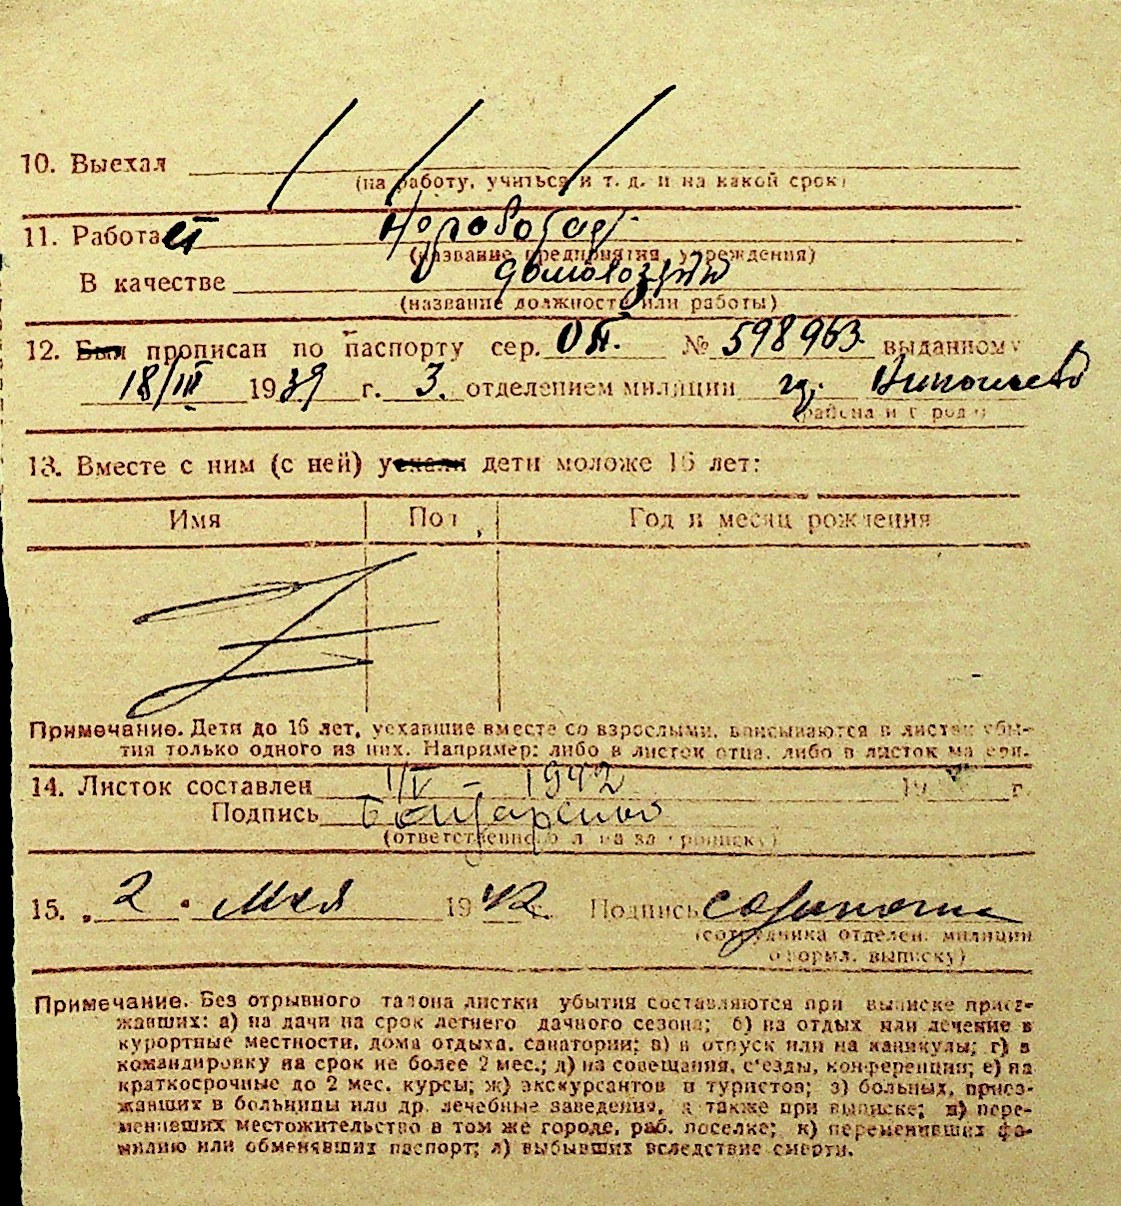 10. Выехал
(на работу, учиться и т. д. и на какой срок)
11. Работает
(название предприятия, учреждения)
В качестве домохозяйки
(название должности или работы)
12. Был прописан по паспорту сер. № 598963 выданному
18/III 1939 г. 3. отделением милиции гор.
(района и города)
13. Вместе с ним (с ней) уехали дети моложе 16 лет:
Имя Пол Год и месяц рождения
Примечание. Дети до 16 лет, уехавшие вместе со взрослыми, вписываются в листок убы-
тия только одного из них. Например: либо в листок отца, либо в листок матери.
14. Листок составлен 1/V - 1942 19 г.
Подпись Бондаренко
(ответственного лица за прописку)
15. „2" мая 1942 г. Подпись
(сотрудника отделен. милиции
оформл. выписку)
Примечание. Без отрывного талона листки убытия составляются при выписке приез-
жавших: а) на дачи на срок летнего дачного сезона; б) на отдых или лечение в
курортные местности, дома отдыха, санатории; в) в отпуск или на каникулы; г) в
командировку на срок не более 2 мес.; д) на совещания, с'езды, конференции; е) на
краткосрочные до 2 мес. курсы; ж) экскурсантов и туристов; з) больных, приез-
жавших в больницы или др. лечебные заведения, а также при выписке; и) пере-
менивших местожительство в том же городе, раб. поселке; к) переменивших фа-
милию или обменявших паспорт; л) выбывших вследствие смерти.